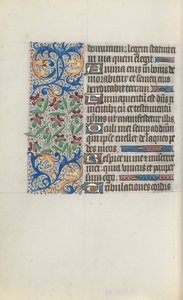 dominum: legem statuit ei
in via quem elegit
Anima eius in bonis de
morabitur et semen eius
hereditabit terram
Firmamentum est dn̄s ti
mentibus eum et testamentū
ipsius ut manifestetur illis
Oculi mei semper ad dn̄m
qm̄ ipse euellet de laqueo pe
des meos
Respice in me et miserere
mei: quia unicus et paup
sum ego
Tribulationes cordis